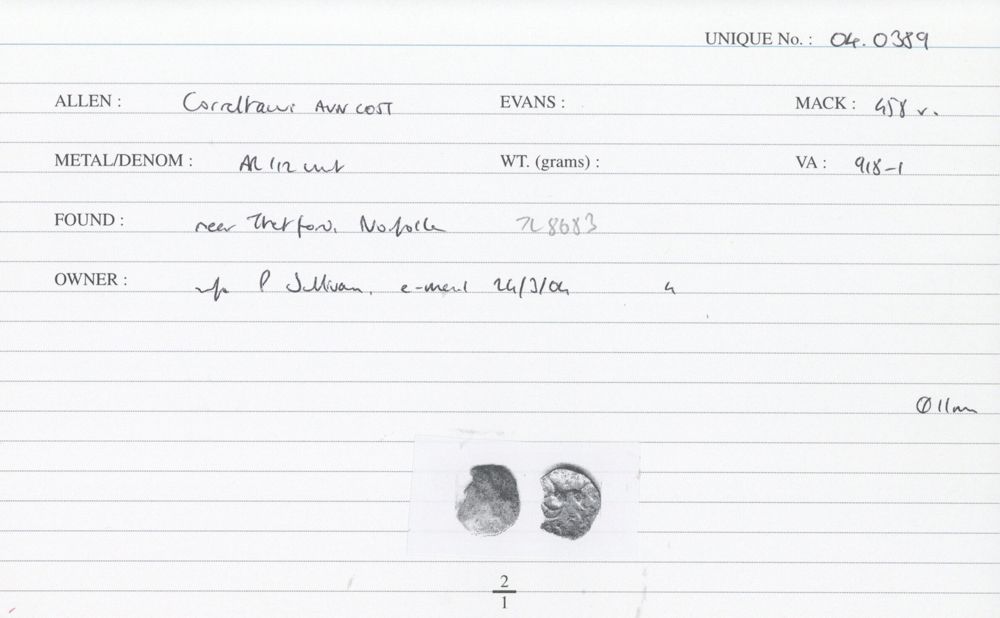 UNIQUE No. : 04.0389
ALLEN : Corieltauvi AVN COST EVANS : MACK : 458 v.
METAL/DENOM : AR 1/2 unit WT. (grams) : VA : 918-1
FOUND : near Thetford, Norfolk TL8683
OWNER : P Sullivan, e-mail 24/3/04
Ø 11mm
2
1